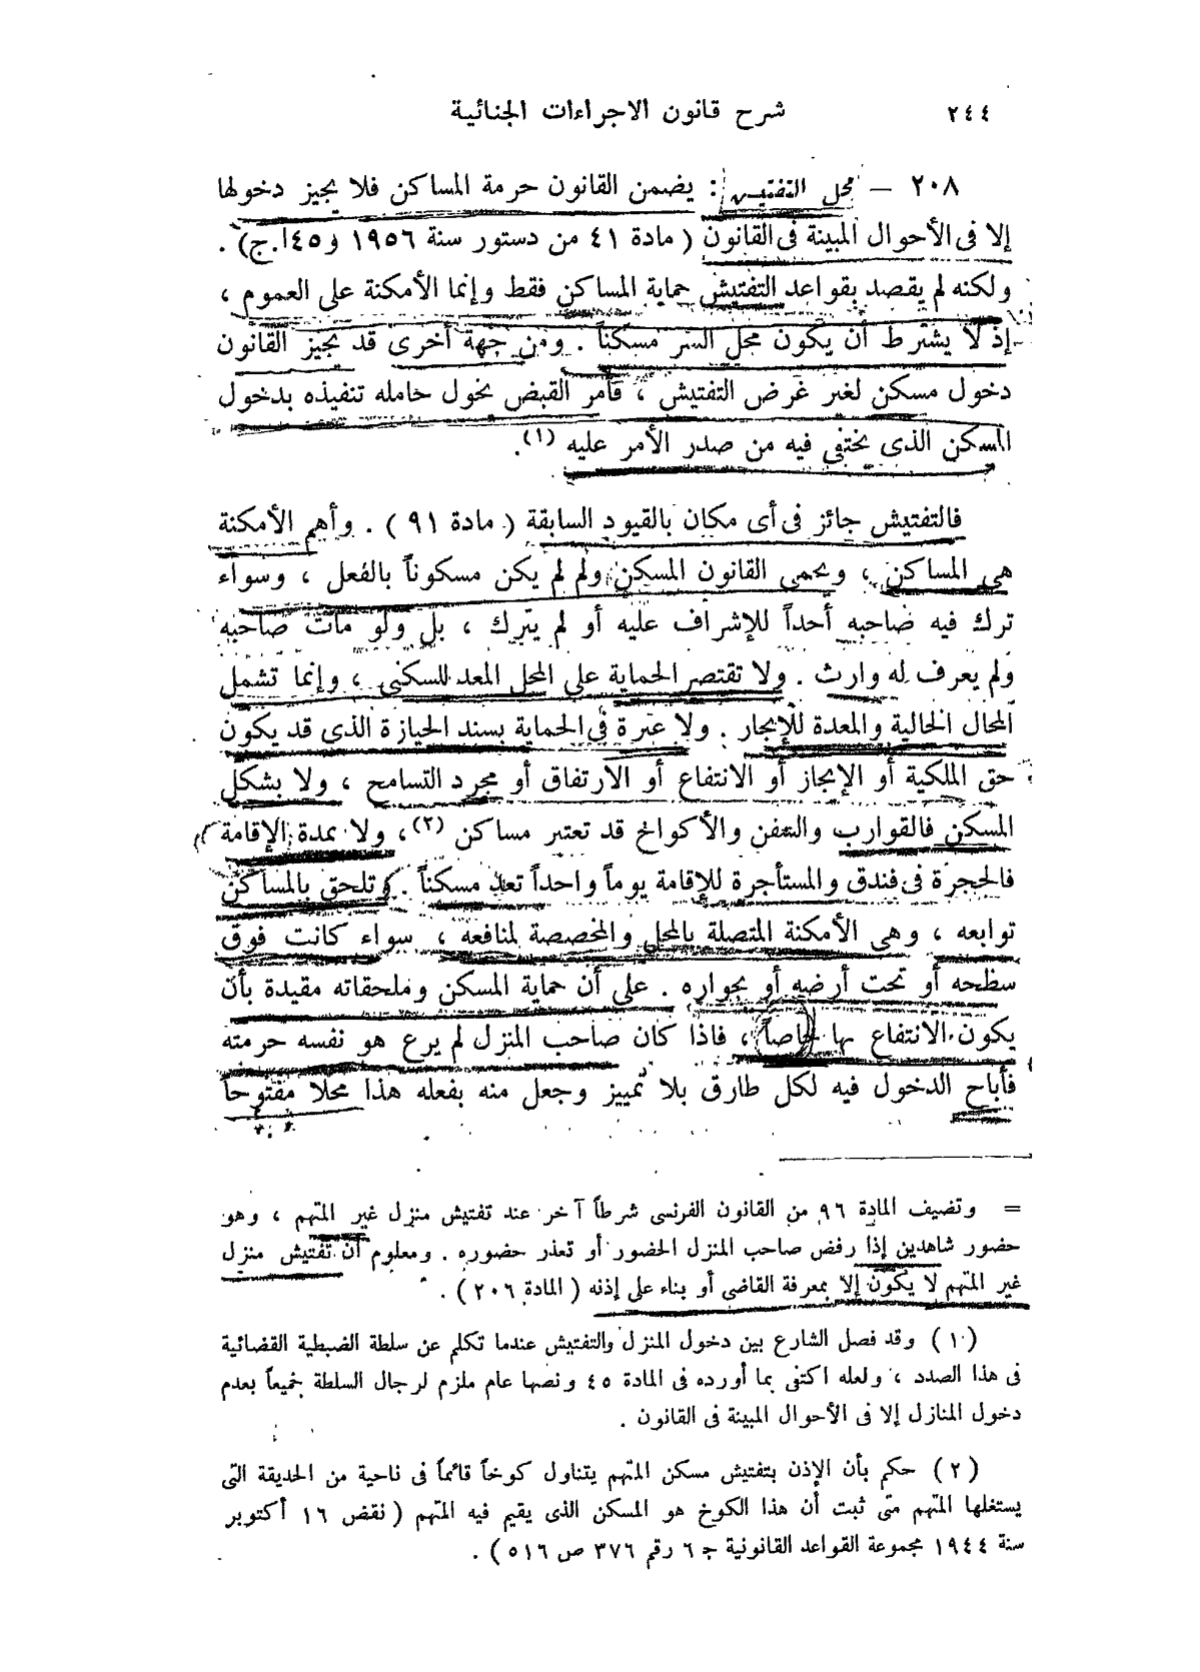 ٢٤٤ شرح قانون الاجراءات الجنائية
٢٠٨ — محل التفتيش : يضمن القانون حرمة المساكن فلا يجيز دخولها
إلا فى الأحوال المبينة فى القانون ( مادة ٤١ من دستور سنة ١٩٥٦ و٤٥ا.ج) .
ولكنه لم يقصد بقواعد التفتيش حماية المساكن فقط وإنما الأمكنة على العموم ،
إذ لا يشترط أن يكون محل السر مسكناً . ومن جهة أخرى قد يجيز القانون
دخول مسكن لغير غرض التفتيش ، فأمر القبض يخول حامله تنفيذه بدخول
المسكن الذى يختفى فيه من صدر الأمر عليه (١).
فالتفتيش جائز فى أى مكان بالقيود السابقة ( مادة ٩١ ) . وأهم الأمكنة
هى المساكن ، ويحمى القانون المسكن ولم لم يكن مسكوناً بالفعل ، وسواء
ترك فيه صاحبه أحداً للإشراف عليه أو لم يترك ، بل ولو مات صاحبه
ولم يعرف له وارث . ولا تقتصر الحماية على المحل المعد للسكنى ، وإنما تشمل
المحال الخالية والمعدة للإيجار . ولا عبرة فى الحماية بسند الحيازة الذى قد يكون
حق الملكية أو الإيجاز أو الانتفاع أو الارتفاق أو مجرد التسامح ، ولا بشكل
المسكن فالقوارب والسفن والأكواخ قد تعتبر مساكن (٢)، ولا بمدة الإقامة
فالحجرة فى فندق والمستأجرة للإقامة يوماً واحداً تعد مسكناً . وتلحق بالمساكن
توابعه ، وهى الأمكنة المتصلة بالمحل والمخصصة لمنافعه ، سواء كانت فوق
سطحه أو تحت أرضه أو بجواره . على أن حماية المسكن وملحقاته مقيدة بأن
يكون الانتفاع بها خاصاً ، فاذا كان صاحب المنزل لم يرع هو نفسه حرمته
فأباح الدخول فيه لكل طارق بلا تمييز وجعل منه بفعله هذا محلا مفتوحاً
= وتضيف المادة ٩٦ من القانون الفرنسى شرطاً آخر عند تفتيش منزل غير المتهم ، وهو
حضور شاهدين إذا رفض صاحب المنزل الحضور أو تعذر حضوره . ومعلوم أن تفتيش منزل
غير المتهم لا يكون إلا بمعرفة القاضى أو بناء على إذنه ( المادة ٢٠٦ ) .
(١) وقد فصل الشارع بين دخول المنزل والتفتيش عندما تكلم عن سلطة الضبطية القضائية
فى هذا الصدد ، ولعله اكتفى بما أورده فى المادة ٤٥ ونصها عام ملزم لرجال السلطة جميعاً بعدم
دخول المنازل إلا فى الأحوال المبينة فى القانون .
(٢) حكم بأن الإذن بتفتيش مسكن المتهم يتناول كوخاً قائماً فى ناحية من الحديقة التى
يستغلها المتهم متى ثبت أن هذا الكوخ هو المسكن الذى يقيم فيه المتهم ( نقض ١٦ أكتوبر
سنة ١٩٤٤ مجموعة القواعد القانونية ج ٦ رقم ٣٧٦ ص ٥١٦ ) .